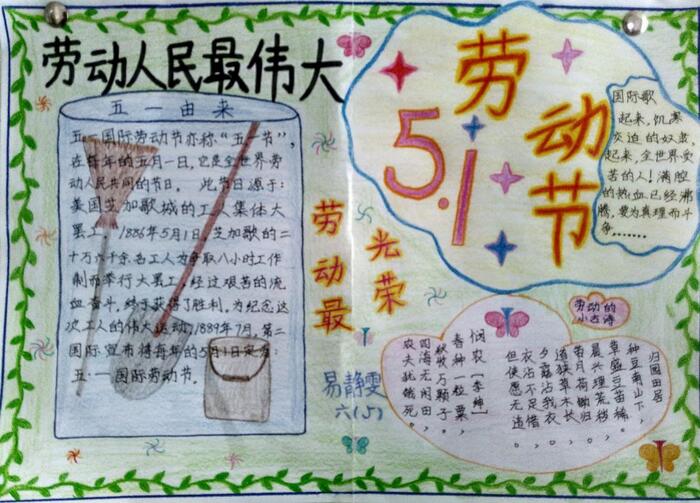 劳动人民最伟大
五一由来
五一国际劳动节亦称“五一节”，
在每年的五月一日，它是全世界劳
动人民共同的节日。 此节日源于：
美国芝加哥城的工人集体大
罢工 1886年5月1日，芝加哥的二
十万六千余名工人为争取八小时工作
制而举行大罢工，经过艰苦的流
血奋斗，终于获得了胜利，为纪念这
次工人的伟大运动，1889年7月，第二
国际宣布将每年的5月1日定为
五·一国际劳动节。
劳动节
5.1
国际歌
起来，饥寒
交迫的奴隶，
起来，全世界受
苦的人！满腔
的热血已经沸
腾，要为真理而斗
争，……
劳动最
光荣
易静雯
六(5)
劳动的
小古诗
归园田居
种豆南山下，
草盛豆苗稀。
晨兴理荒秽，
带月荷锄归。
道狭草木长，
夕露沾我衣。
衣沾不足惜，
但使愿无违。
悯农【李绅】
春种一粒粟，
秋收万颗子。
四海无闲田，
农夫犹饿死。